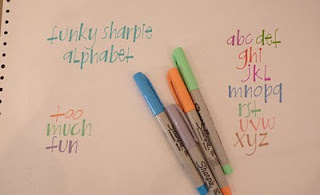 funky sharpie
alphabet
abc def
ghi
jkl
mnopq
rst
uvw
xyz
too
much
fun
Sharpie
Sharpie